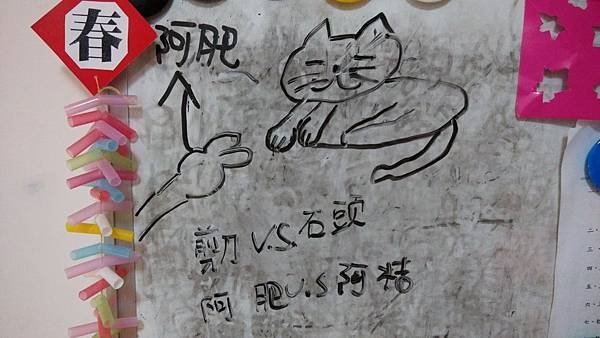 春
阿肥
剪刀 V.S.石頭
阿肥V.S阿